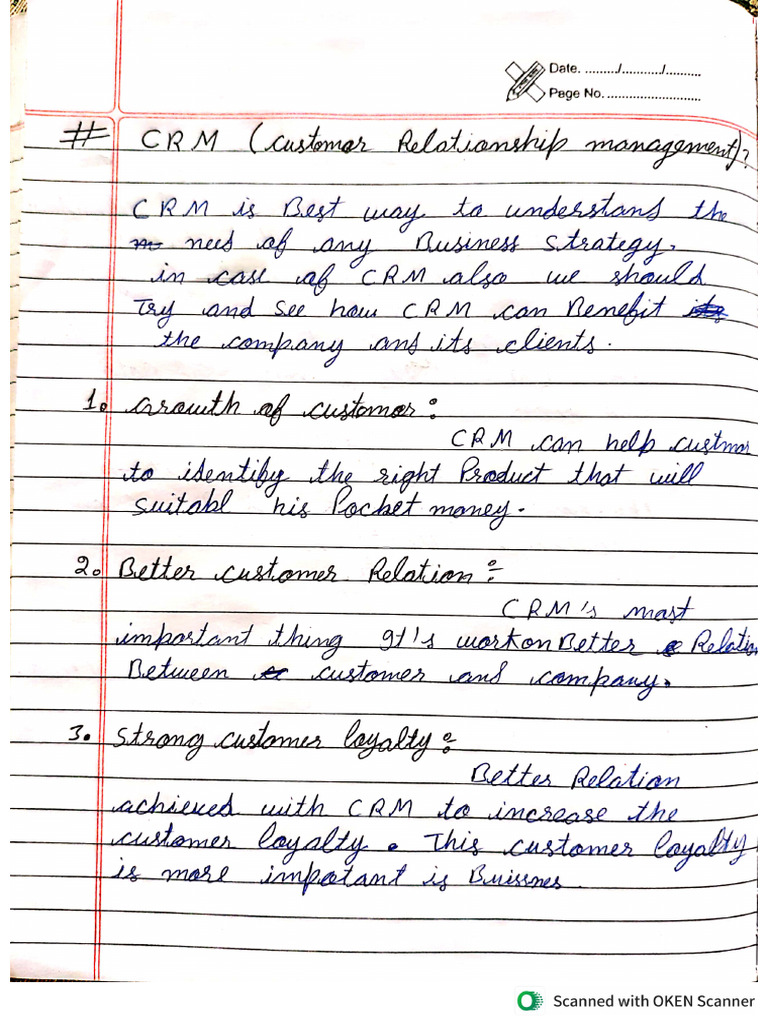 Date. ........./.........../..........
Page No. ............................
# CRM (customer Relationship management)?
CRM is Best way to understand the
need of any Business strategy.
in case of CRM also we should
Try and see how CRM can Benefit
the company and its clients.
1. Growth of customer:
CRM can help custmor
to identify the right Product that will
suitabl his Pocket money.
2. Better customer Relation:
CRM's most
important thing It's work on Better Relation
Between customer and company.
3. Strong customer loyalty:
Better Relation
achieved with CRM to increase the
customer loyalty. This customer loyalty
is more impotant is Buissnes.
Scanned with OKEN Scanner